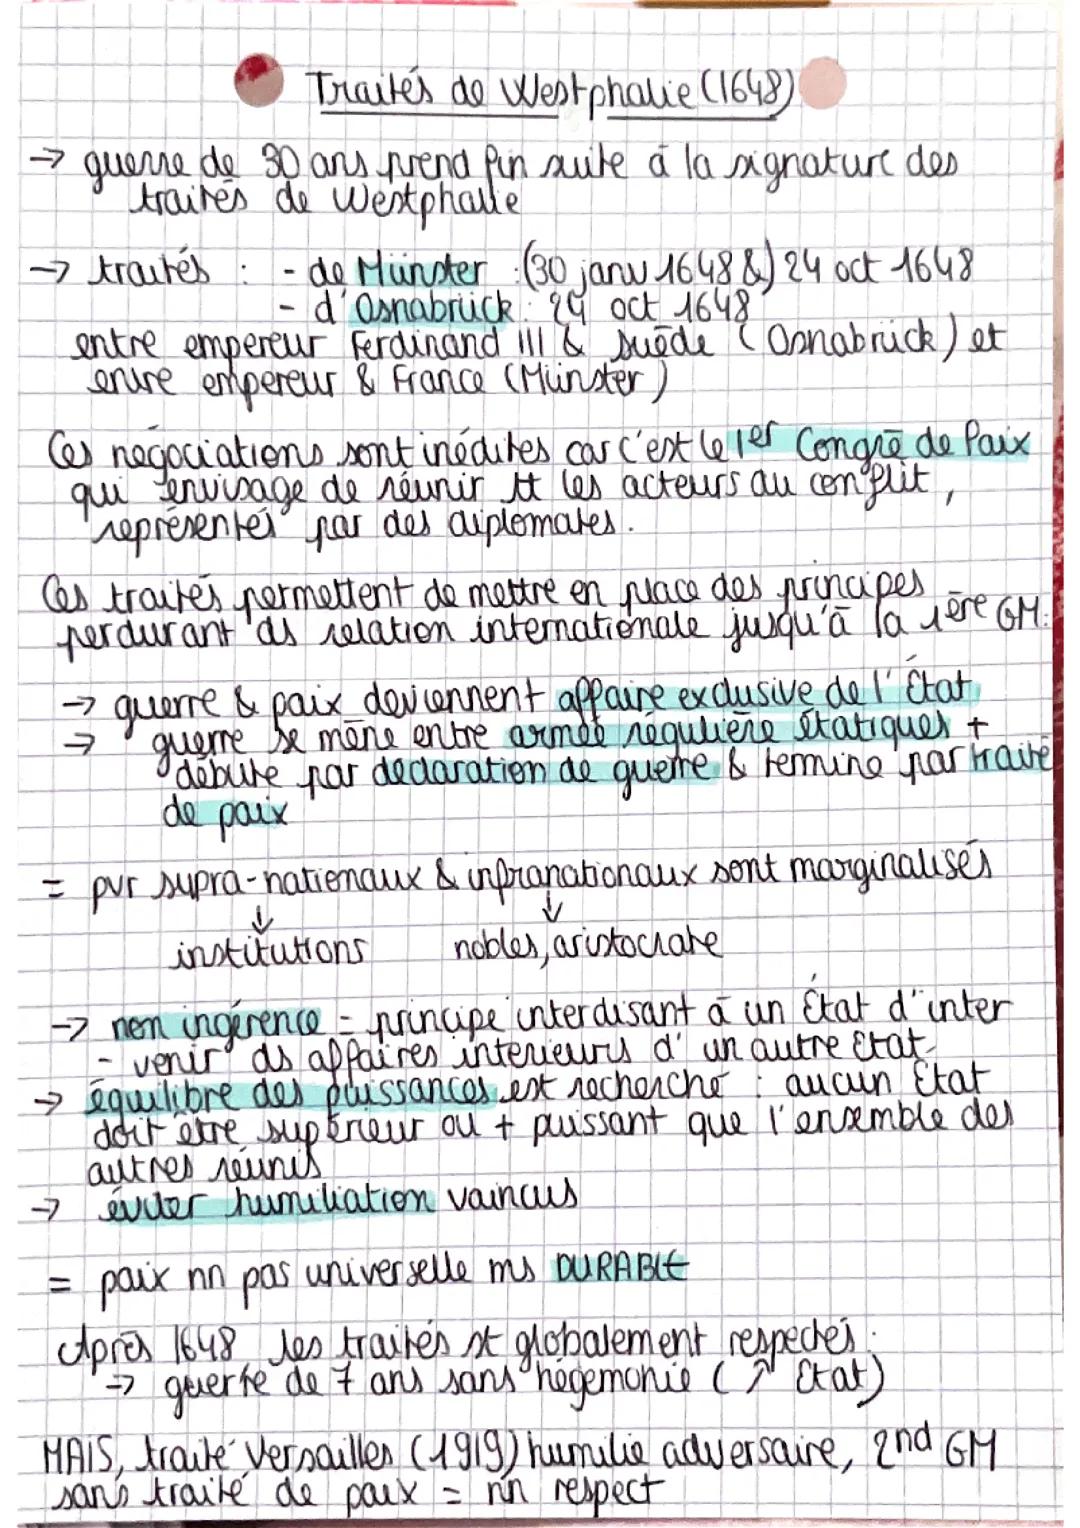 Traités de Westphalie (1648)
→ guerre de 30 ans prend fin suite à la signature des
traités de Westphalie
→ traités : - de Münster : (30 janv 1648 &) 24 oct 1648
- d'Osnabrück : 24 oct 1648
entre empereur Ferdinand III & Suède (Osnabrück) et
entre empereur & France (Münster)
Ces négociations sont inédites car c'est le 1er Congrè de Paix
qui envisage de réunir tt les acteurs du conflit,
représentés par des diplomates.
Ces traités permettent de mettre en place des principes
perdurant ds relation internationale jusqu'à la 1ère GM.
→ guerre & paix deviennent affaire exclusive de l'État
→ guerre se mène entre armée régulière étatiques +
débute par déclaration de guerre & termine par traité
de paix
= pvr supra-nationaux & infranationaux sont marginalisés
↓ ↓
institutions nobles, aristocrate
→ non ingérence = principe interdisant à un État d'inter
- venir ds affaires intérieurs d'un autre État.
→ équilibre des puissances est recherché : aucun État
doit être supérieur ou + puissant que l'ensemble des
autres réunis
→ éviter humiliation vaincus
= paix nn pas universelle ms DURABLE
Après 1648 les traités st globalement respectés :
→ guerre de 7 ans sans hégémonie (↗ État)
MAIS, traité Versailles (1919) humilie adversaire, 2nd GM
sans traité de paix = nn respect